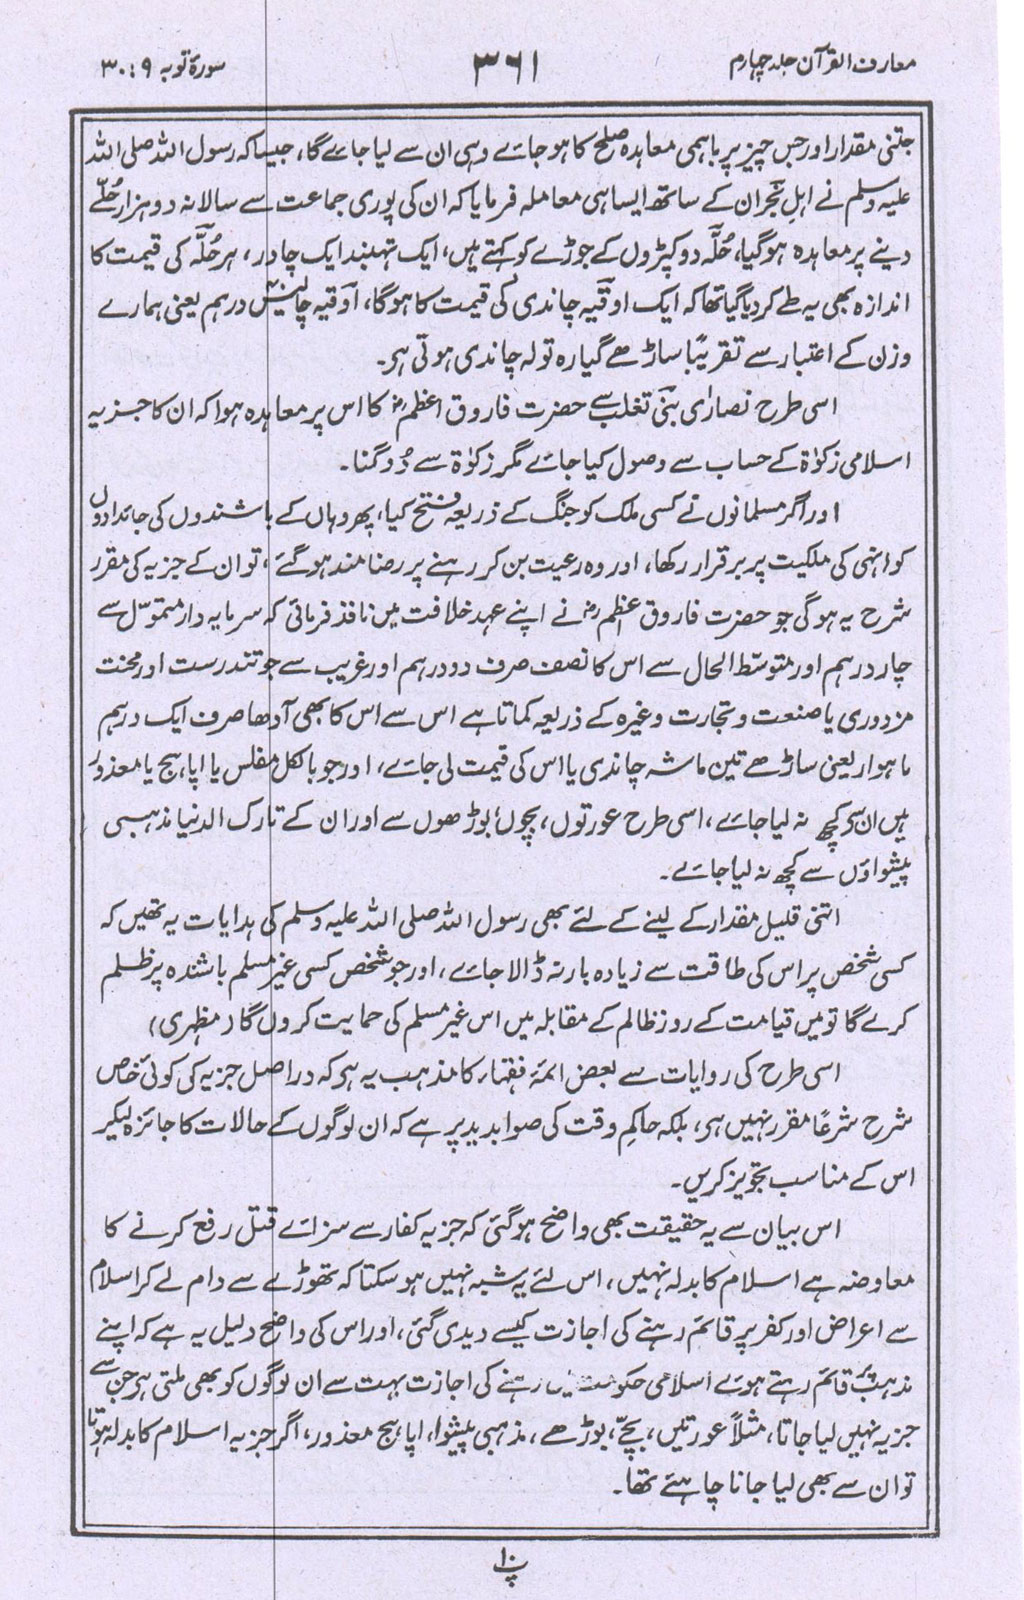 معارف القرآن جلد چہارم
۳۶۱
سورۂ توبہ ۹ : ۳۰
جتنی مقدار اور جس چیز پر باہمی معاہدہ صلح کا ہوجائے وہی ان سے لیا جائے گا، جیسا کہ رسول اللہ صلی اللہ
علیہ وسلم نے اہلِ نجران کے ساتھ ایسا ہی معاملہ فرمایا کہ ان کی پوری جماعت سے سالانہ دو ہزار حُلّے
دینے پر معاہدہ ہوگیا، حُلّہ دو کپڑوں کے جوڑے کو کہتے ہیں، ایک تہبند ایک چادر، ہر حُلّہ کی قیمت کا
اندازہ بھی یہ طے کردیا گیا تھا کہ ایک اوقیہ چاندی کی قیمت کا ہوگا، اوقیہ چالیس درہم یعنی ہمارے
وزن کے اعتبار سے تقریبًا ساڑھے گیارہ تولہ چاندی ہوتی ہی۔
اسی طرح نصاریٰ بنی تغلب سے حضرت فاروق اعظمؓ کا اس پر معاہدہ ہوا کہ ان کا جزیہ
اسلامی زکوٰۃ کے حساب سے وصول کیا جائے مگر زکوٰۃ سے دُوگنا۔
اور اگر مسلمانوں نے کسی ملک کو جنگ کے ذریعہ فتح کیا، پھر وہاں کے باشندوں کی جائدادوں
کو انہی کی ملکیت پر برقرار رکھا، اور وہ رعیت بن کر رہنے پر رضا مند ہوگئے، تو ان کے جزیہ کی مقرر
شرح یہ ہوگی جو حضرت فاروق اعظمؓ نے اپنے عہدِ خلافت میں نافذ فرمائی کہ سرمایہ دار متموّل سے
چار درہم اور متوسّط الحال سے اس کا نصف صرف دو درہم اور غریب سے جو تندرست اور محنت
مزدوری یا صنعت و تجارت وغیرہ کے ذریعہ کماتا ہے اس سے اس کا بھی آدھا صرف ایک درہم
ماہوار یعنی ساڑھے تین ماشہ چاندی یا اس کی قیمت لی جائے، اور جو بالکل مفلس یا اپاہج یا معذور
ہیں ان سے کچھ نہ لیا جائے، اسی طرح عورتوں، بچوں، بوڑھوں سے اور ان کے تارک الدنیا مذہبی
پیشواؤں سے کچھ نہ لیا جائے۔
اتنی قلیل مقدار کے لینے کے لئے بھی رسول اللہ صلی اللہ علیہ وسلم کی ہدایات یہ تھیں کہ
کسی شخص پر اس کی طاقت سے زیادہ بار نہ ڈالا جائے، اور جو شخص کسی غیر مسلم باشندہ پر ظلم
کرے گا تو میں قیامت کے روز ظالم کے مقابلہ میں اس غیر مسلم کی حمایت کروں گا (مظہری)
اسی طرح کی روایات سے بعض ائمہ فقہاء کا مذہب یہ ہی کہ دراصل جزیہ کی کوئی خاص
شرح شرعًا مقرر نہیں ہی، بلکہ حاکمِ وقت کی صوابدید پر ہے کہ ان لوگوں کے حالات کا جائزہ لیکر
اس کے مناسب تجویز کریں۔
اس بیان سے یہ حقیقت بھی واضح ہوگئی کہ جزیہ کفار سے سزائے قتل رفع کرنے کا
معاوضہ ہے اسلام کا بدلہ نہیں، اس لئے یہ شبہ نہیں ہوسکتا کہ تھوڑے سے دام لے کر اسلام
سے اعراض اور کفر پر قائم رہنے کی اجازت کیسے دیدی گئی، اور اس کی واضح دلیل یہ ہے کہ اپنے
مذہب پر قائم رہتے ہوئے اسلامی حکومت میں رہنے کی اجازت بہت سے ان لوگوں کو بھی ملتی ہی جن سے
جزیہ نہیں لیا جاتا، مثلًا عورتیں، بچّے، بوڑھے، مذہبی پیشوا، اپاہج معذور، اگر جزیہ اسلام کا بدلہ ہوتا
تو ان سے بھی لیا جانا چاہئے تھا۔
پ۱۰